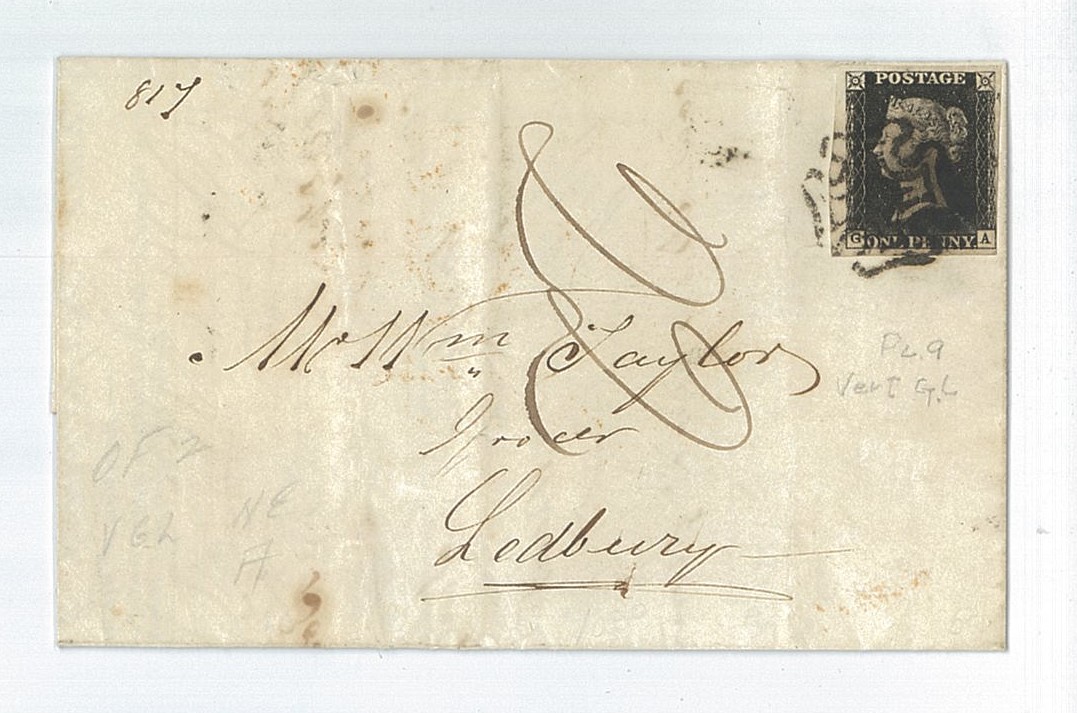 817
POSTAGE
G ONE PENNY A
Mr Wm Taylor
Grocer
Ledbury
PL.9
Vert G.L
OF 2
VGL
NE
A